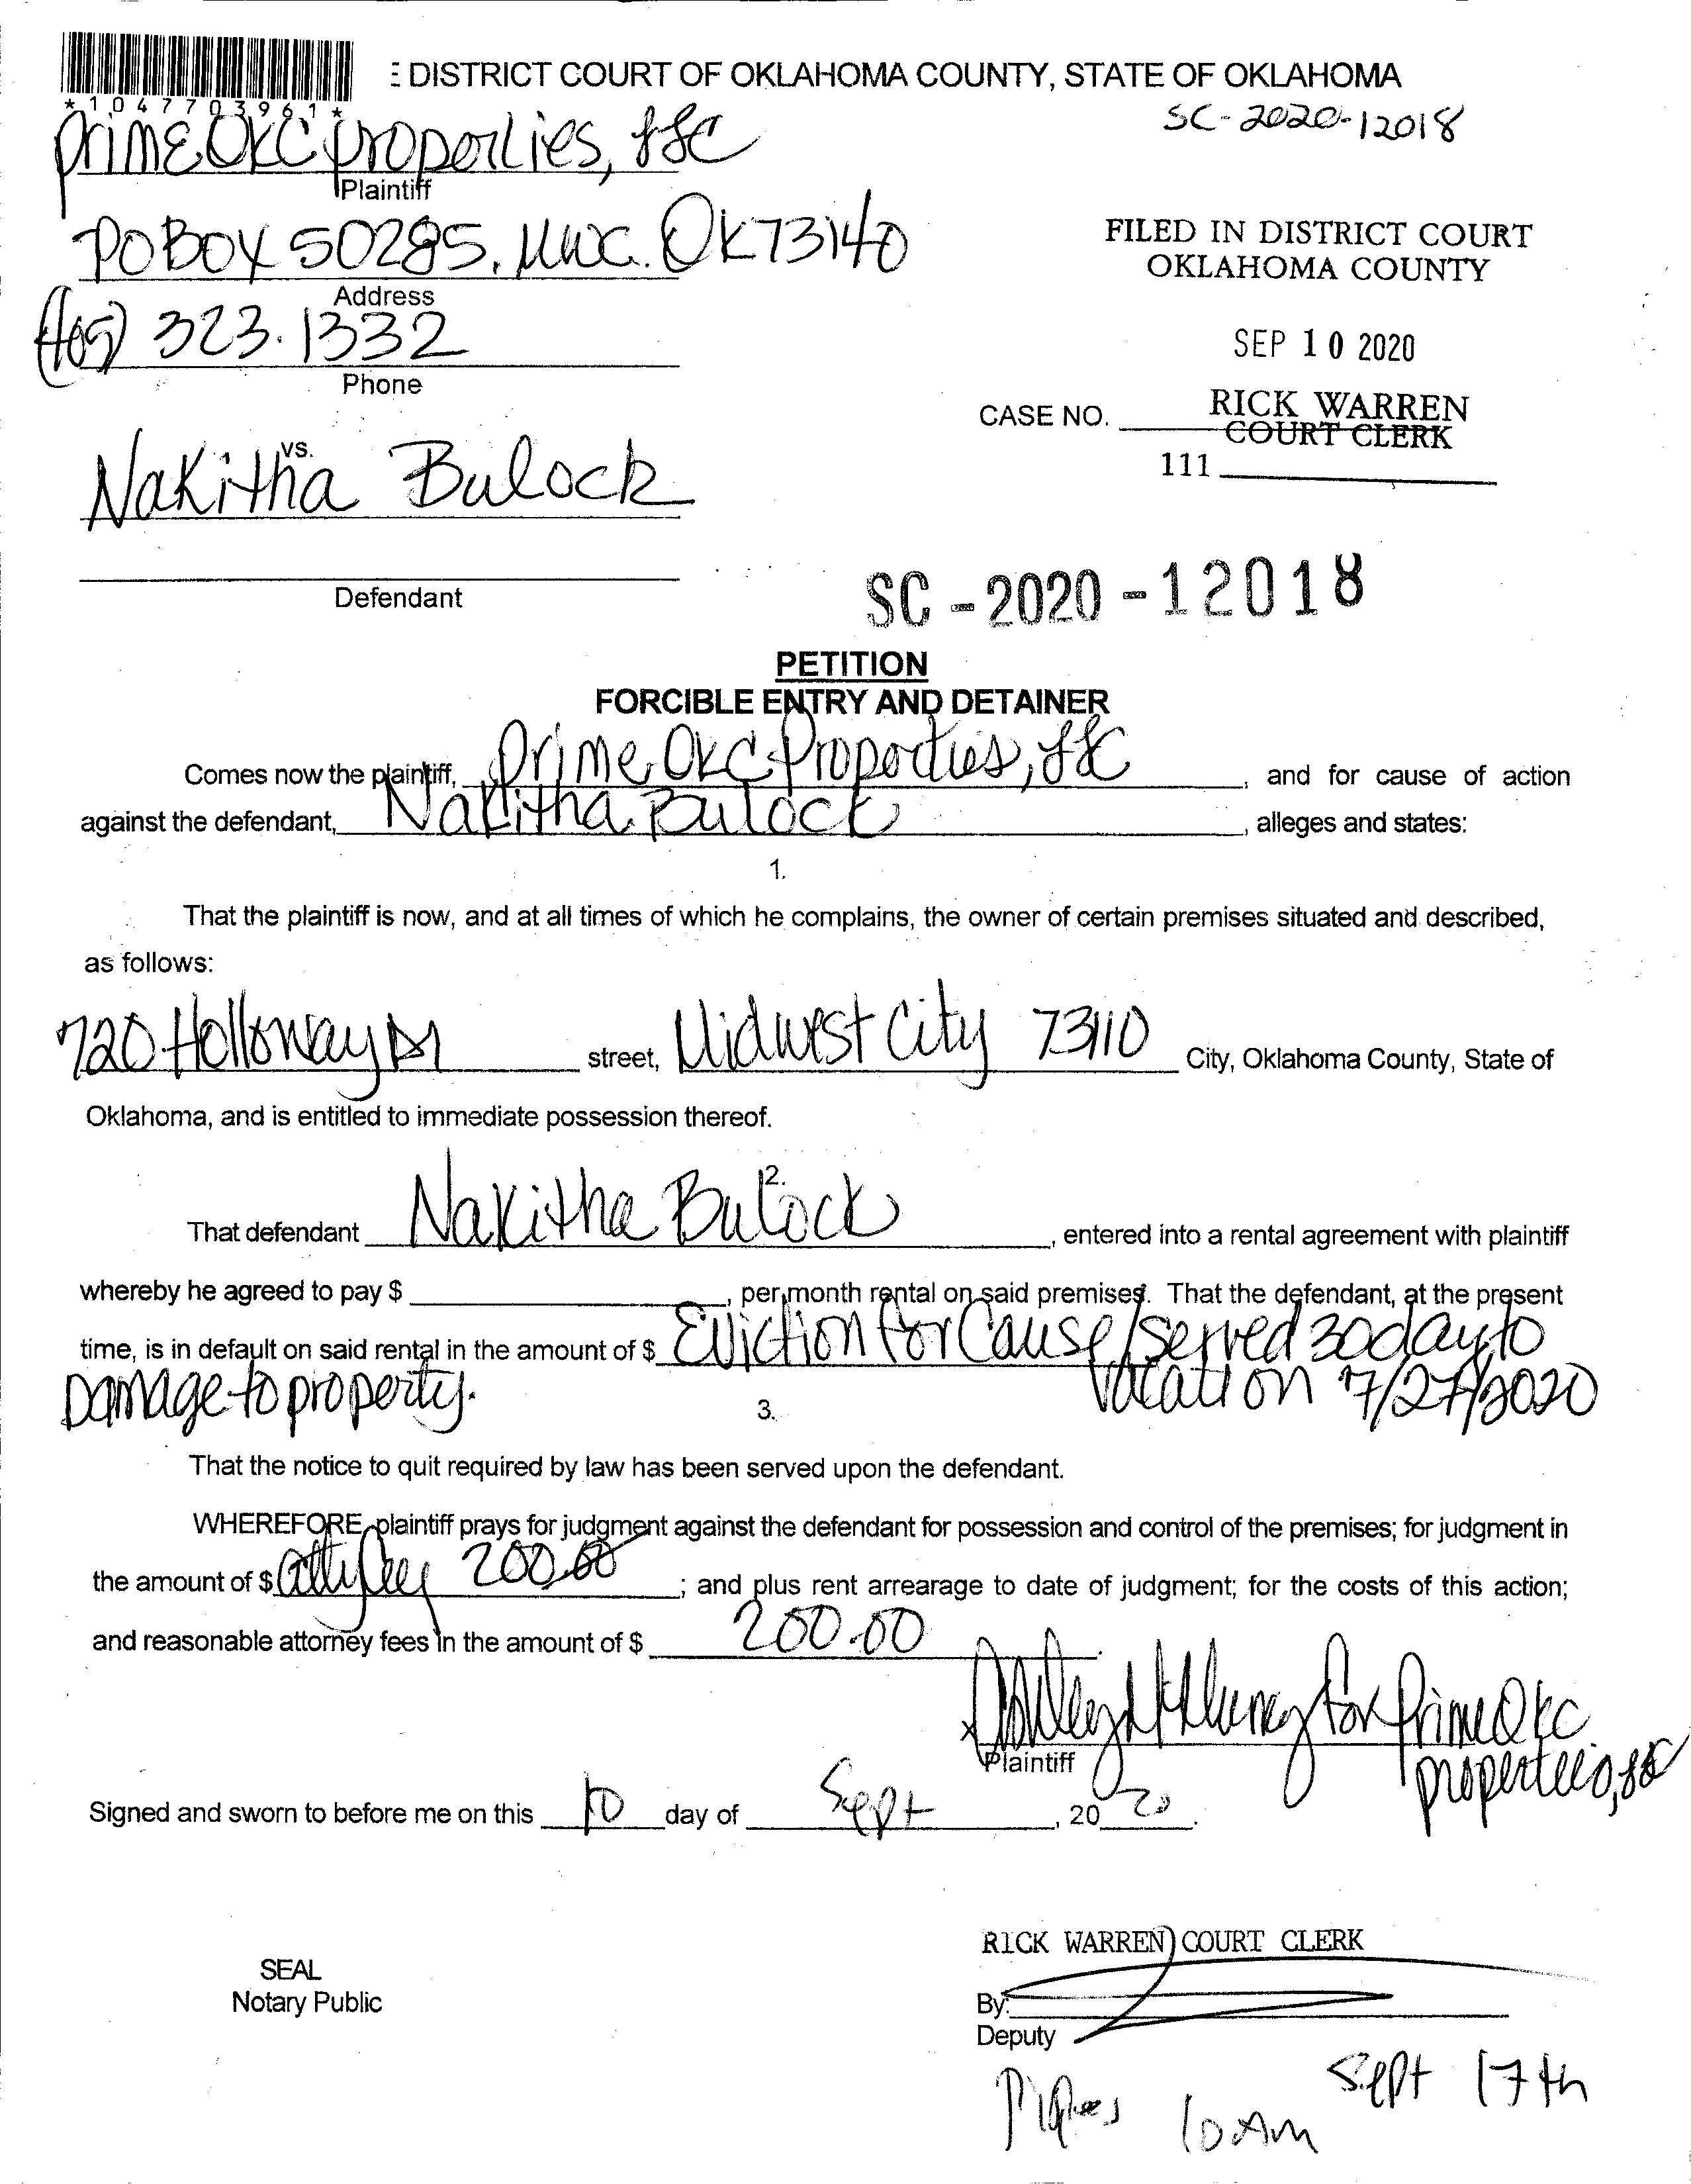 E DISTRICT COURT OF OKLAHOMA COUNTY, STATE OF OKLAHOMA
*1047703961*
SC-2020-12018
Prime OKC Properties, LLC
Plaintiff
PO BOX 50285, MWC. OK 73140
FILED IN DISTRICT COURT
OKLAHOMA COUNTY
Address
(405) 323.1332
SEP 10 2020
Phone
CASE NO. RICK WARREN
COURT CLERK
111
vs.
Nakitha Bulock
Defendant
SC-2020-12018
PETITION
FORCIBLE ENTRY AND DETAINER
Comes now the plaintiff, Prime OKC Properties, LLC, and for cause of action
against the defendant, Nakitha Bulock, alleges and states:
1.
That the plaintiff is now, and at all times of which he complains, the owner of certain premises situated and described,
as follows:
720 Holloway Dr street, Midwest City 73110 City, Oklahoma County, State of
Oklahoma, and is entitled to immediate possession thereof.
2.
That defendant Nakitha Bulock, entered into a rental agreement with plaintiff
whereby he agreed to pay $ , per month rental on said premises. That the defendant, at the present
time, is in default on said rental in the amount of $ Eviction for Cause/served 30 day to
Damage to property. vacat on 7/27/2020
3.
That the notice to quit required by law has been served upon the defendant.
WHEREFORE, plaintiff prays for judgment against the defendant for possession and control of the premises; for judgment in
the amount of $ atty fees 200.00; and plus rent arrearage to date of judgment; for the costs of this action;
and reasonable attorney fees in the amount of $ 200.00
x Ashley for Prime OKC
Plaintiff properties, LLC
Signed and sworn to before me on this 10 day of Sept, 20 20.
RICK WARREN COURT CLERK
SEAL
Notary Public
By:
Deputy
Sept 17th
10 AM